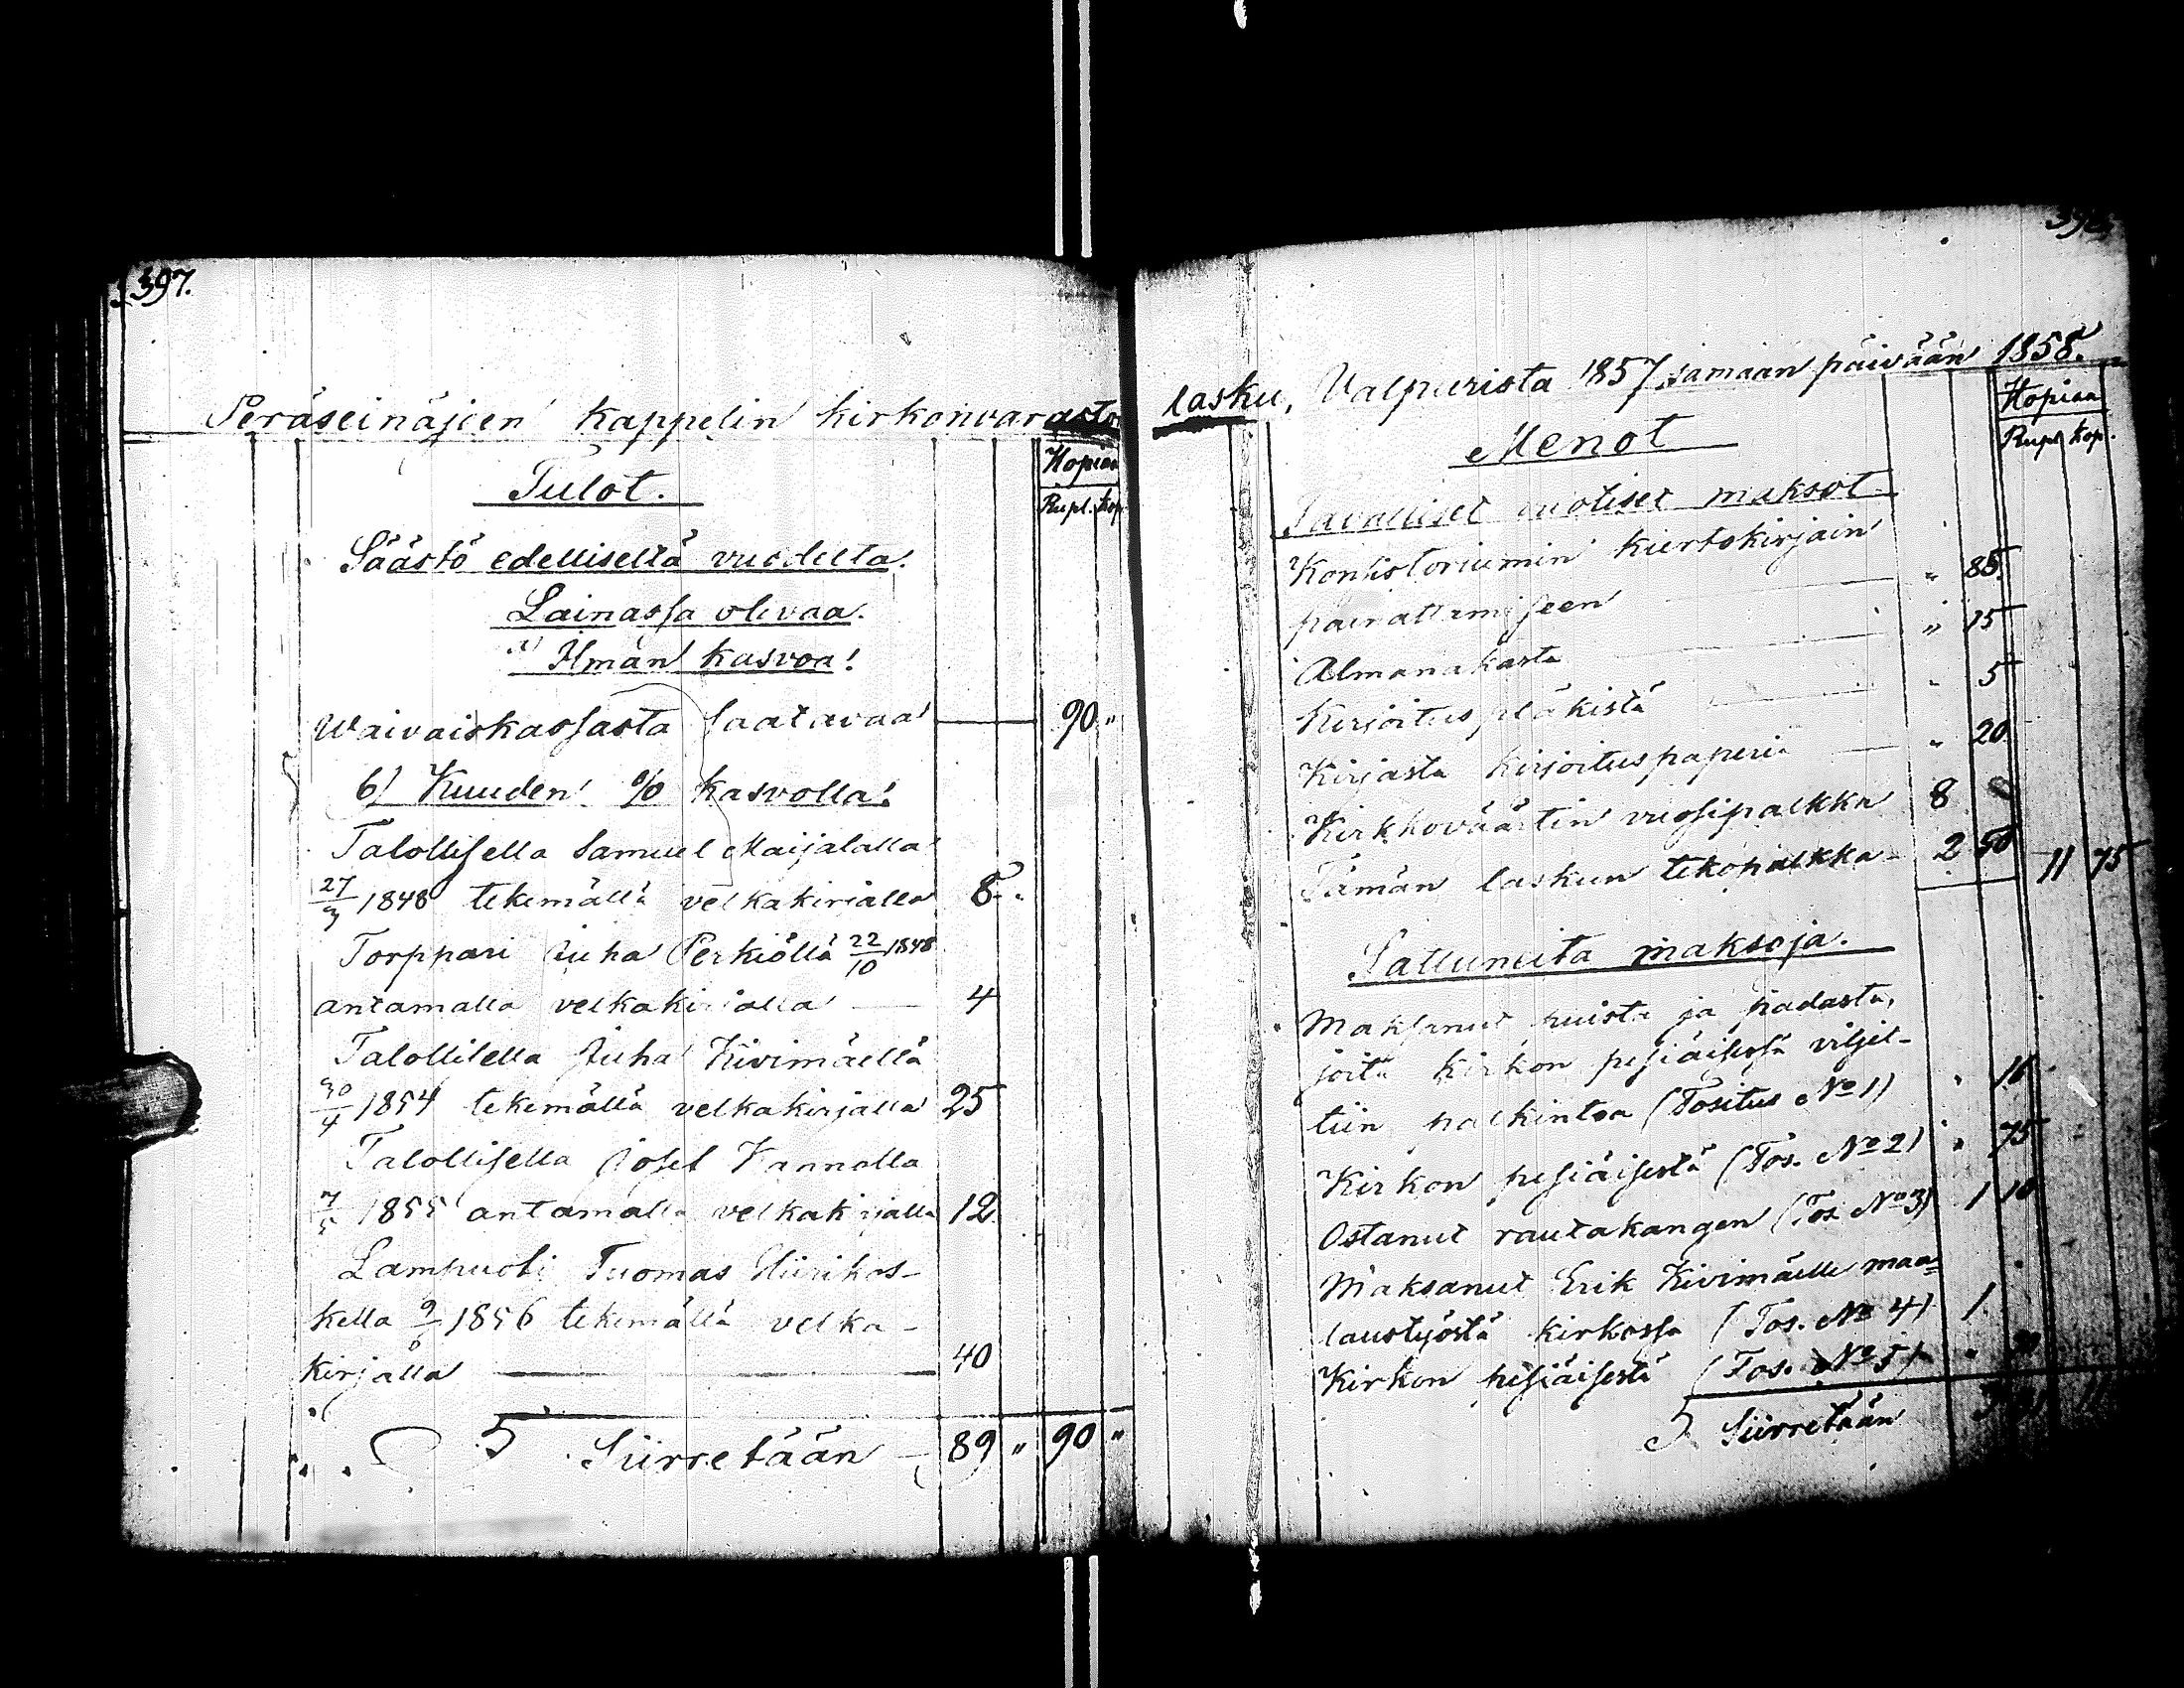 397.
Peräseinäjoen kappelin kirkonvarasto
Hopiaa
Tulot.
Rupl. Kop.
Säästö edelliseltä vuodelta.
Lainassa olevaa.
a) Ilman kasvoa!
Waivaiskassasta saatavaa 90 "
b) Kuuden % kasvolla!
Talollisella Samuel Maijalalla
27/3 1848 tekemällä velkakirjalla 8 "
Torppari Juha Perkiöllä 22/10 1848
antamalla velkakirjalla 4
Talollisella Juha Kivimäellä
30/4 1854 tekemällä velkakirjalla 25
Talollisella Josef Kannolla
7/5 1855 antamalla velkakirjalla 12
Lampuoti Tuomas Hiirikos-
kella 9/6 1856 tekemällä velka-
kirjalla 40
Siirretään 89 " 90 "
lasku, Valpurista 1857 samaan päivään 1858.
Hopiaa
Menot
Rupl. Kop.
Tavalliset vuotiset maksot
Konsistoriumin kiertokirjain
painattamiseen " 85
Almanakasta " 15
Kirjoitus pläkistä " 5
Kirjasta kirjoituspaperia " 20
Kirkkoväärtin vuosipalkka 8
Tämän laskun tekopalkka 2 50 11 75
Sattuneita maksoja.
Maksanut puista ja padasta,
joita kirkon pesiäisessä viljel-
tiin palkintoa (Tositus No 1)
Kirkon pesiäisestä (Tos. No 2) " 75
Ostanut rautakangen (Tos. No 3) 1 10
Maksanut Erik Kivimäelle maa=
laustyöstä kirkossa (Tos. No 4) 1
Kirkon pesiäisestä (Tos. No 5)
Siirretään